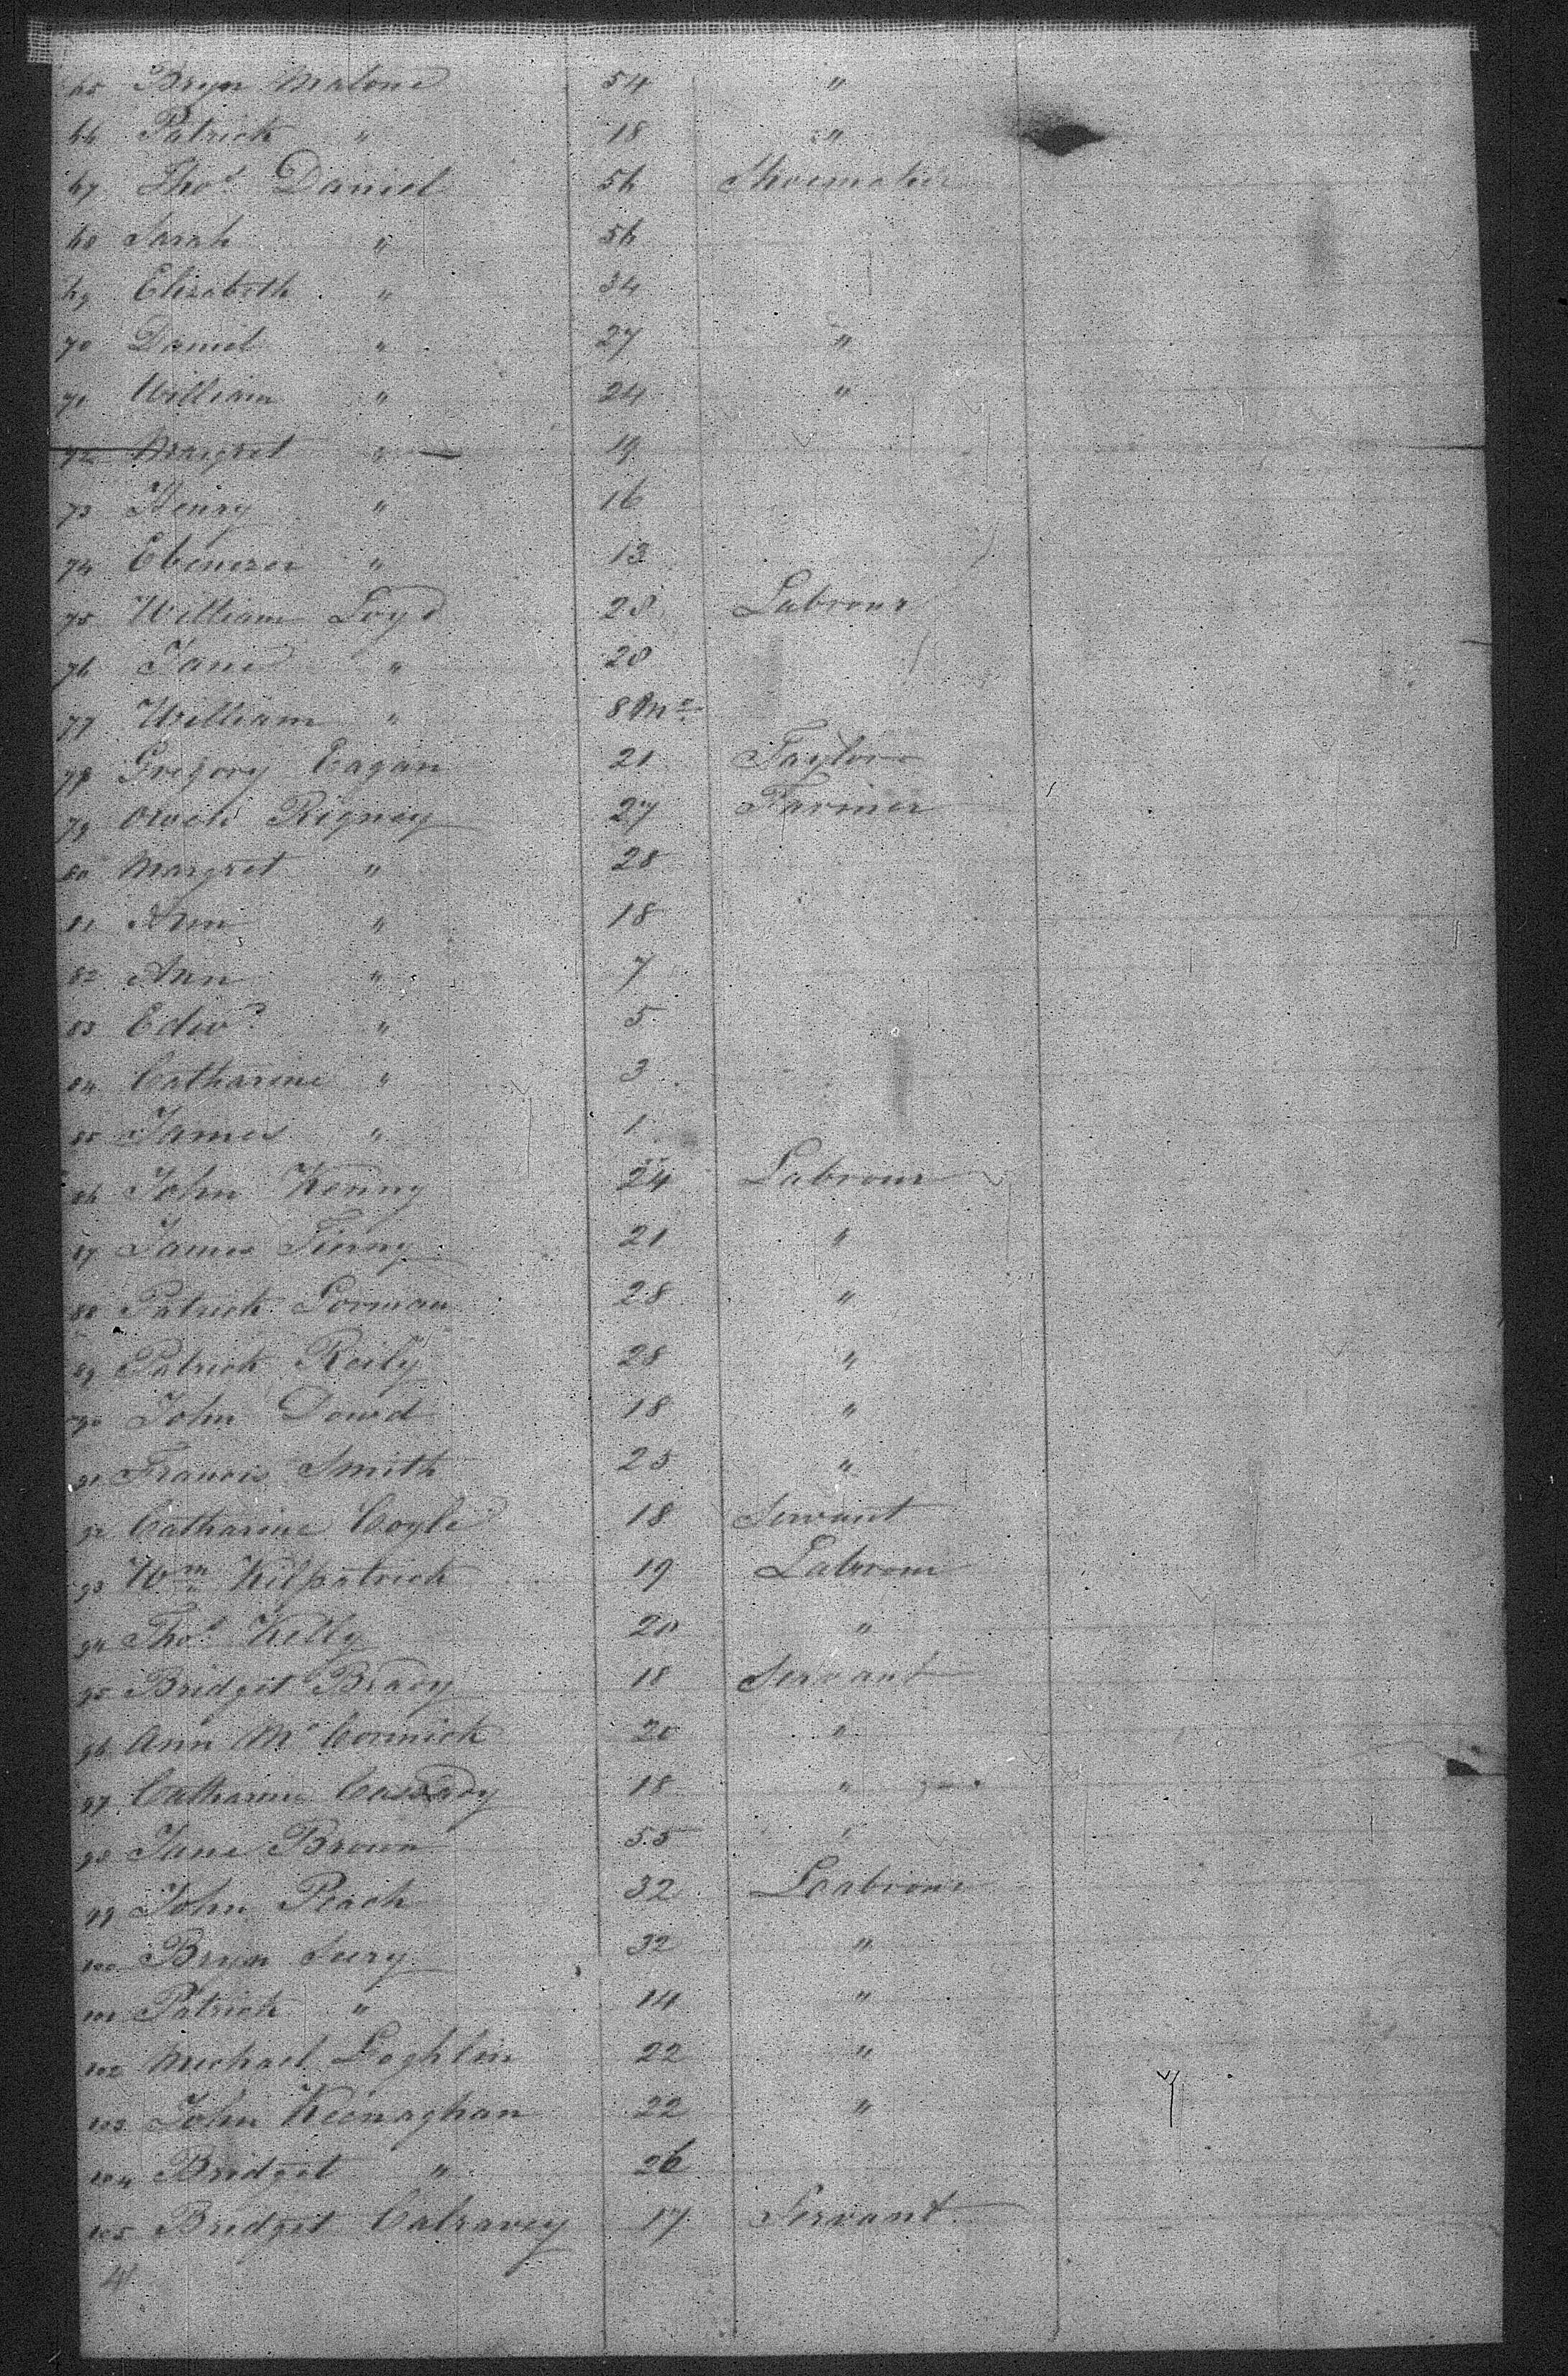 65 Bryn Malone 54 "
66 Patrick " 18 "
67 Thos Daniel 56 Shoemaker
68 Sarah " 56
69 Elizabeth " 34
70 Daniel " 27 "
71 William " 24 "
72 Margret " 19
73 Henry " 16
74 Ebenezer " 13
75 William Loyd 28 Labrour
76 Jane " 28
77 William " 8 Mos
78 Gregory Eagan 21 Taylor
79 Owen Rigney 27 Farmer
80 Margret " 28
81 Ann " 18
82 Ann " 7
83 Edwd " 5
84 Catharine " 3
85 James " 1
86 John Kenny 24 Labrour
87 James Finny 21 "
88 Patrick Gorman 28 "
89 Patrick Reily 28 "
90 John Dowd 18 "
91 Francis Smith 25 "
92 Catharine Coyle 18 Servant
93 Wm Kilpatrick 19 Labrour
94 Thos Kelly 20 "
95 Bridget Brady 18 Servant
96 Ann McCormick 20 "
97 Catharine Cassidy 18 "
98 Jane Brown 55 "
99 John Peach 32 Laabrour
100 Bryn 32 "
101 Patrick " 14 "
102 Michael Loghlin 22 "
103 John Keenaghan 22 "
104 Bridget " 26
105 Bridget 17 Servant
41